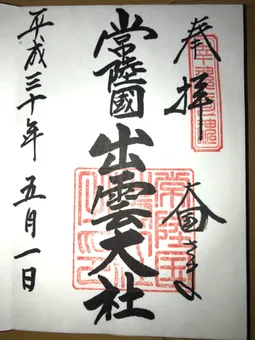 奉拝
大国さま
常陸國出雲大社
常陸国
平成三十年 五月一日